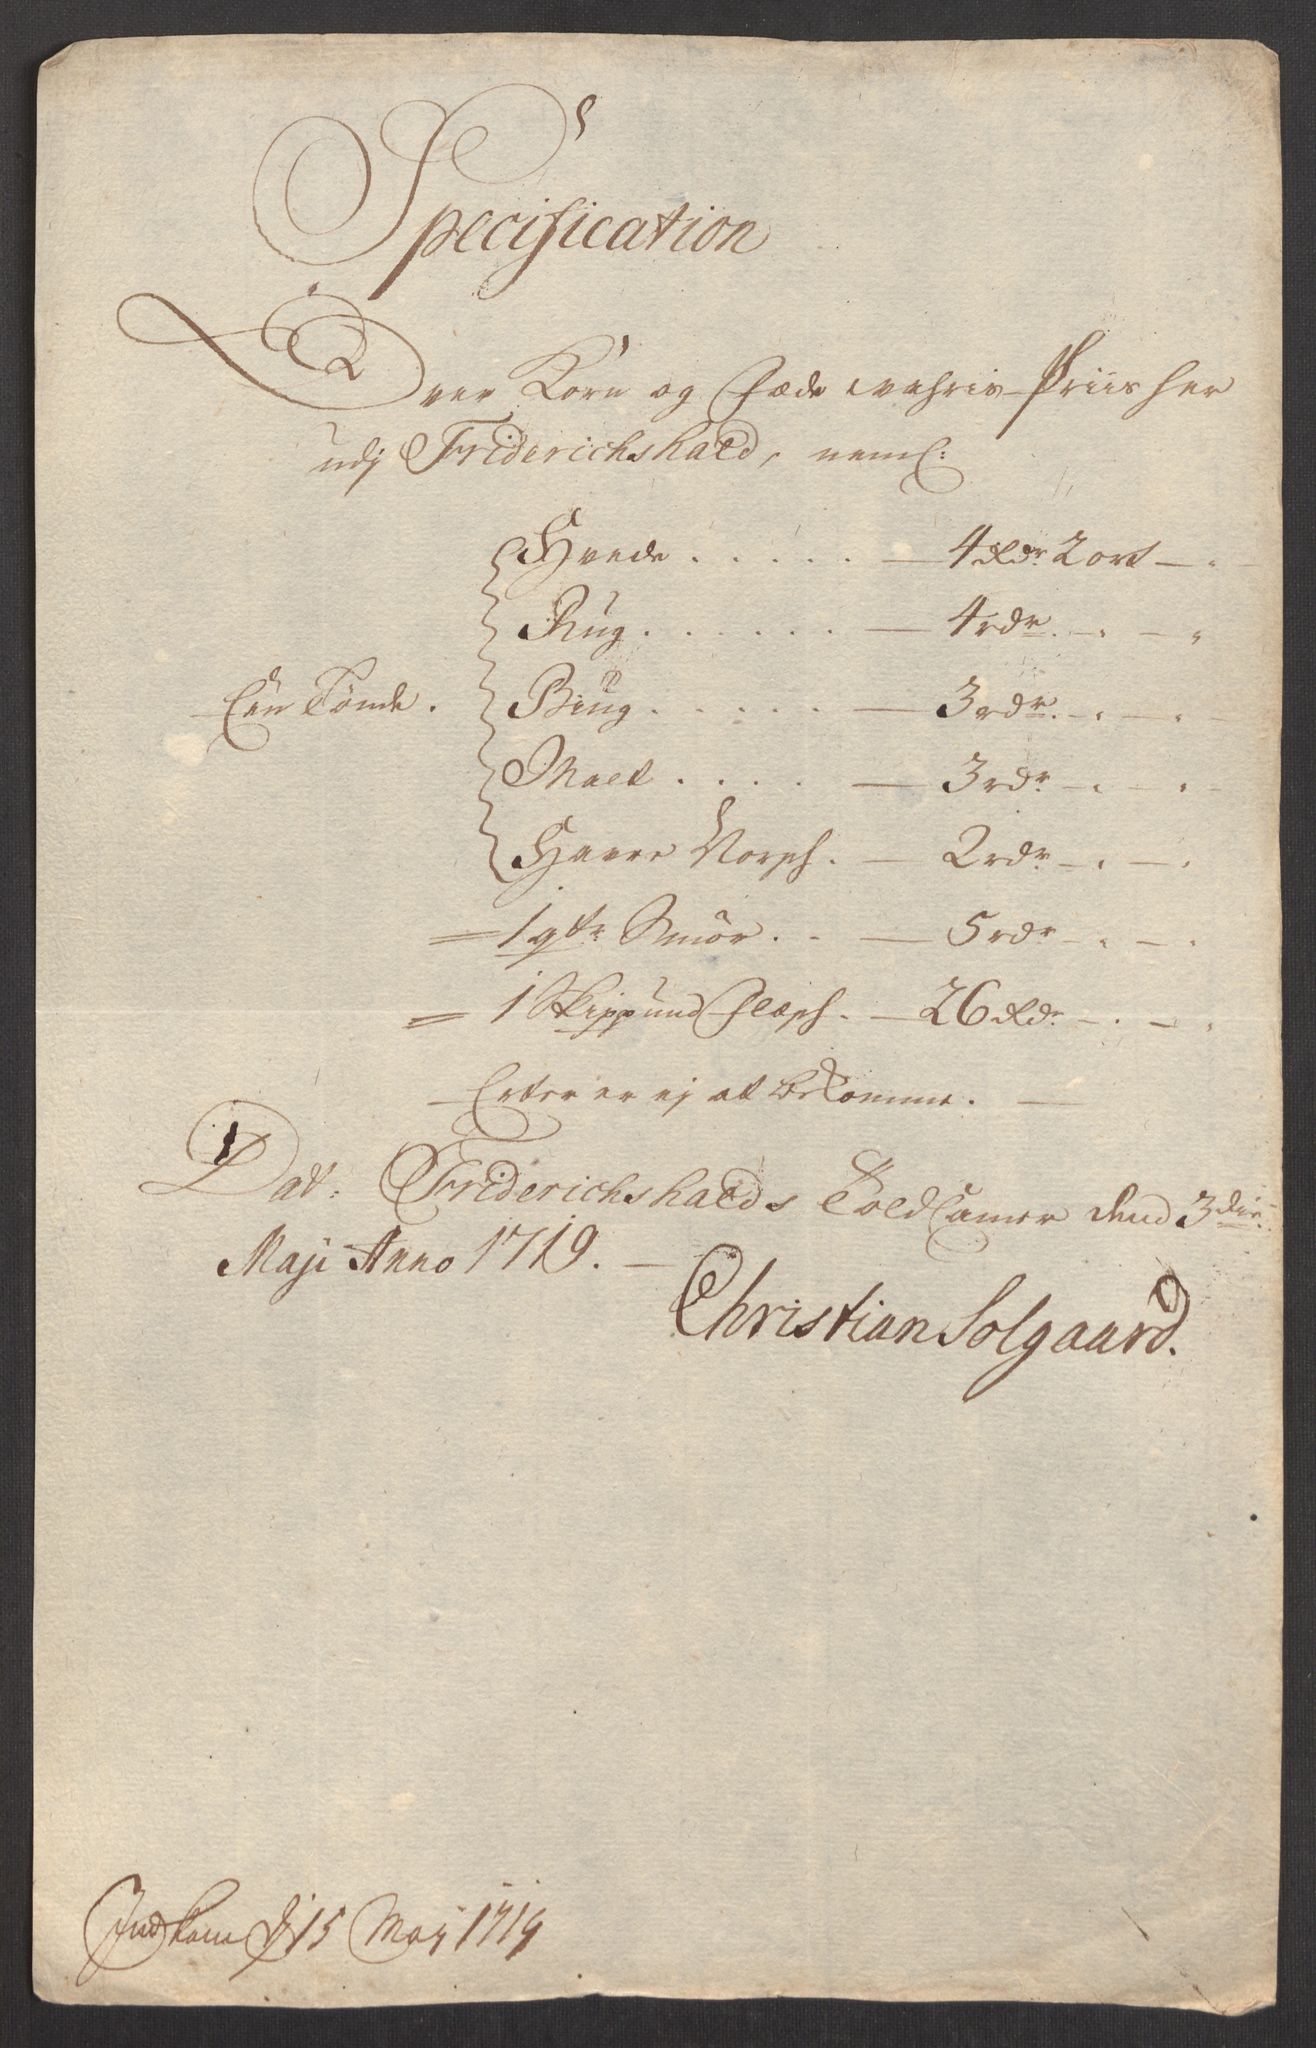 Specification
Over Korn og Fæde wahris Priis her
udj Friderichshald, neml:
Hvede . . . . . — 4 Rdr 2 ort — "
Rug . . . . . . — 4 rdr. — " — "
Een Tønde . Biug . . . . . — 3 rdr. — " — "
Malt . . . . — 3 rdr — " — "
Havre Norsch . — 2 rdr — " — "
= 1 qtr Smör . . — 5 rdr — " — "
= 1 Skippund Flæsch . — 26 Rdr — " — "
— Erter er ej at bekomme. —
Dat: Friderichshalds Told Camer dend 3die
Maji Anno 1719. —
Christian Solgaard.
Indkom d 15 Maj 1719